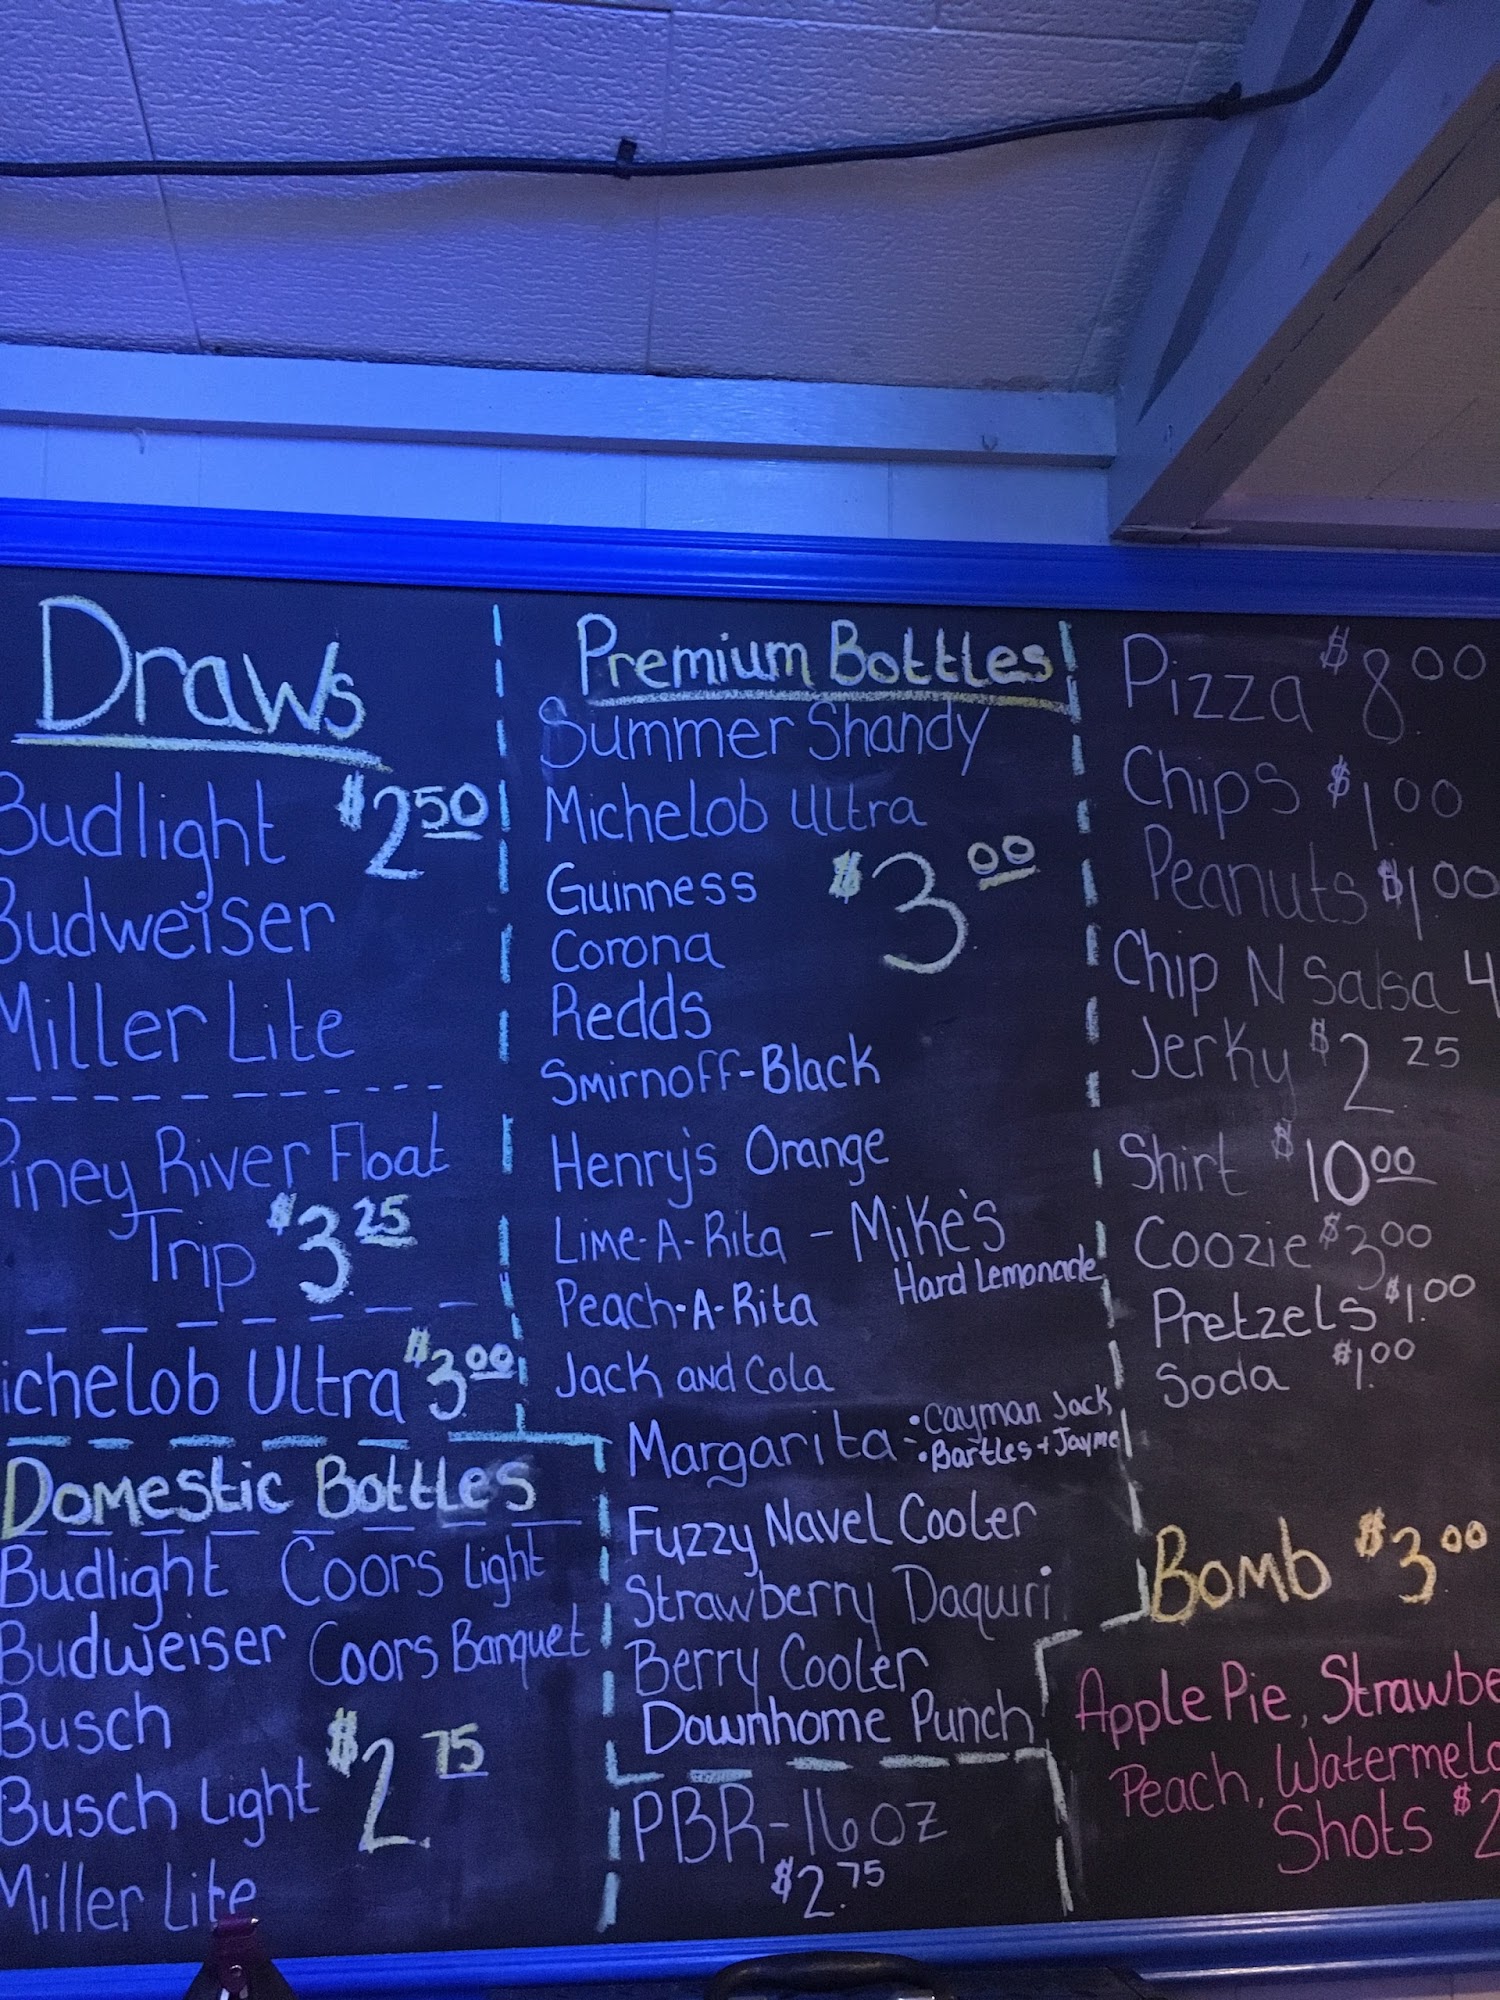 Draws
Budlight $2.50
Budweiser
Miller Lite
Piney River Float
Trip $3.25
Michelob Ultra $3.00
Domestic Bottles
Budlight Coors Light
Budweiser Coors Banquet
Busch
Busch Light $2.75
Miller Lite
Premium Bottles
Summer Shandy
Michelob Ultra
Guinness $3.00
Corona
Redds
Smirnoff-Black
Henry's Orange
Lime-A-Rita - Mike's
Hard Lemonade
Peach-A-Rita
Jack and Cola
Margarita - • Cayman Jack
• Bartles + Jayme
Fuzzy Navel Cooler
Strawberry Daquiri
Berry Cooler
Downhome Punch
PBR-16oz
$2.75
Pizza $8.00
Chips $1.00
Peanuts $1.00
Chip N Salsa 4
Jerky $2.25
Shirt $10.00
Coozie $3.00
Pretzels $1.00
Soda $1.00
Bomb $3.00
Apple Pie, Strawbe
Peach, Watermelo
Shots $2